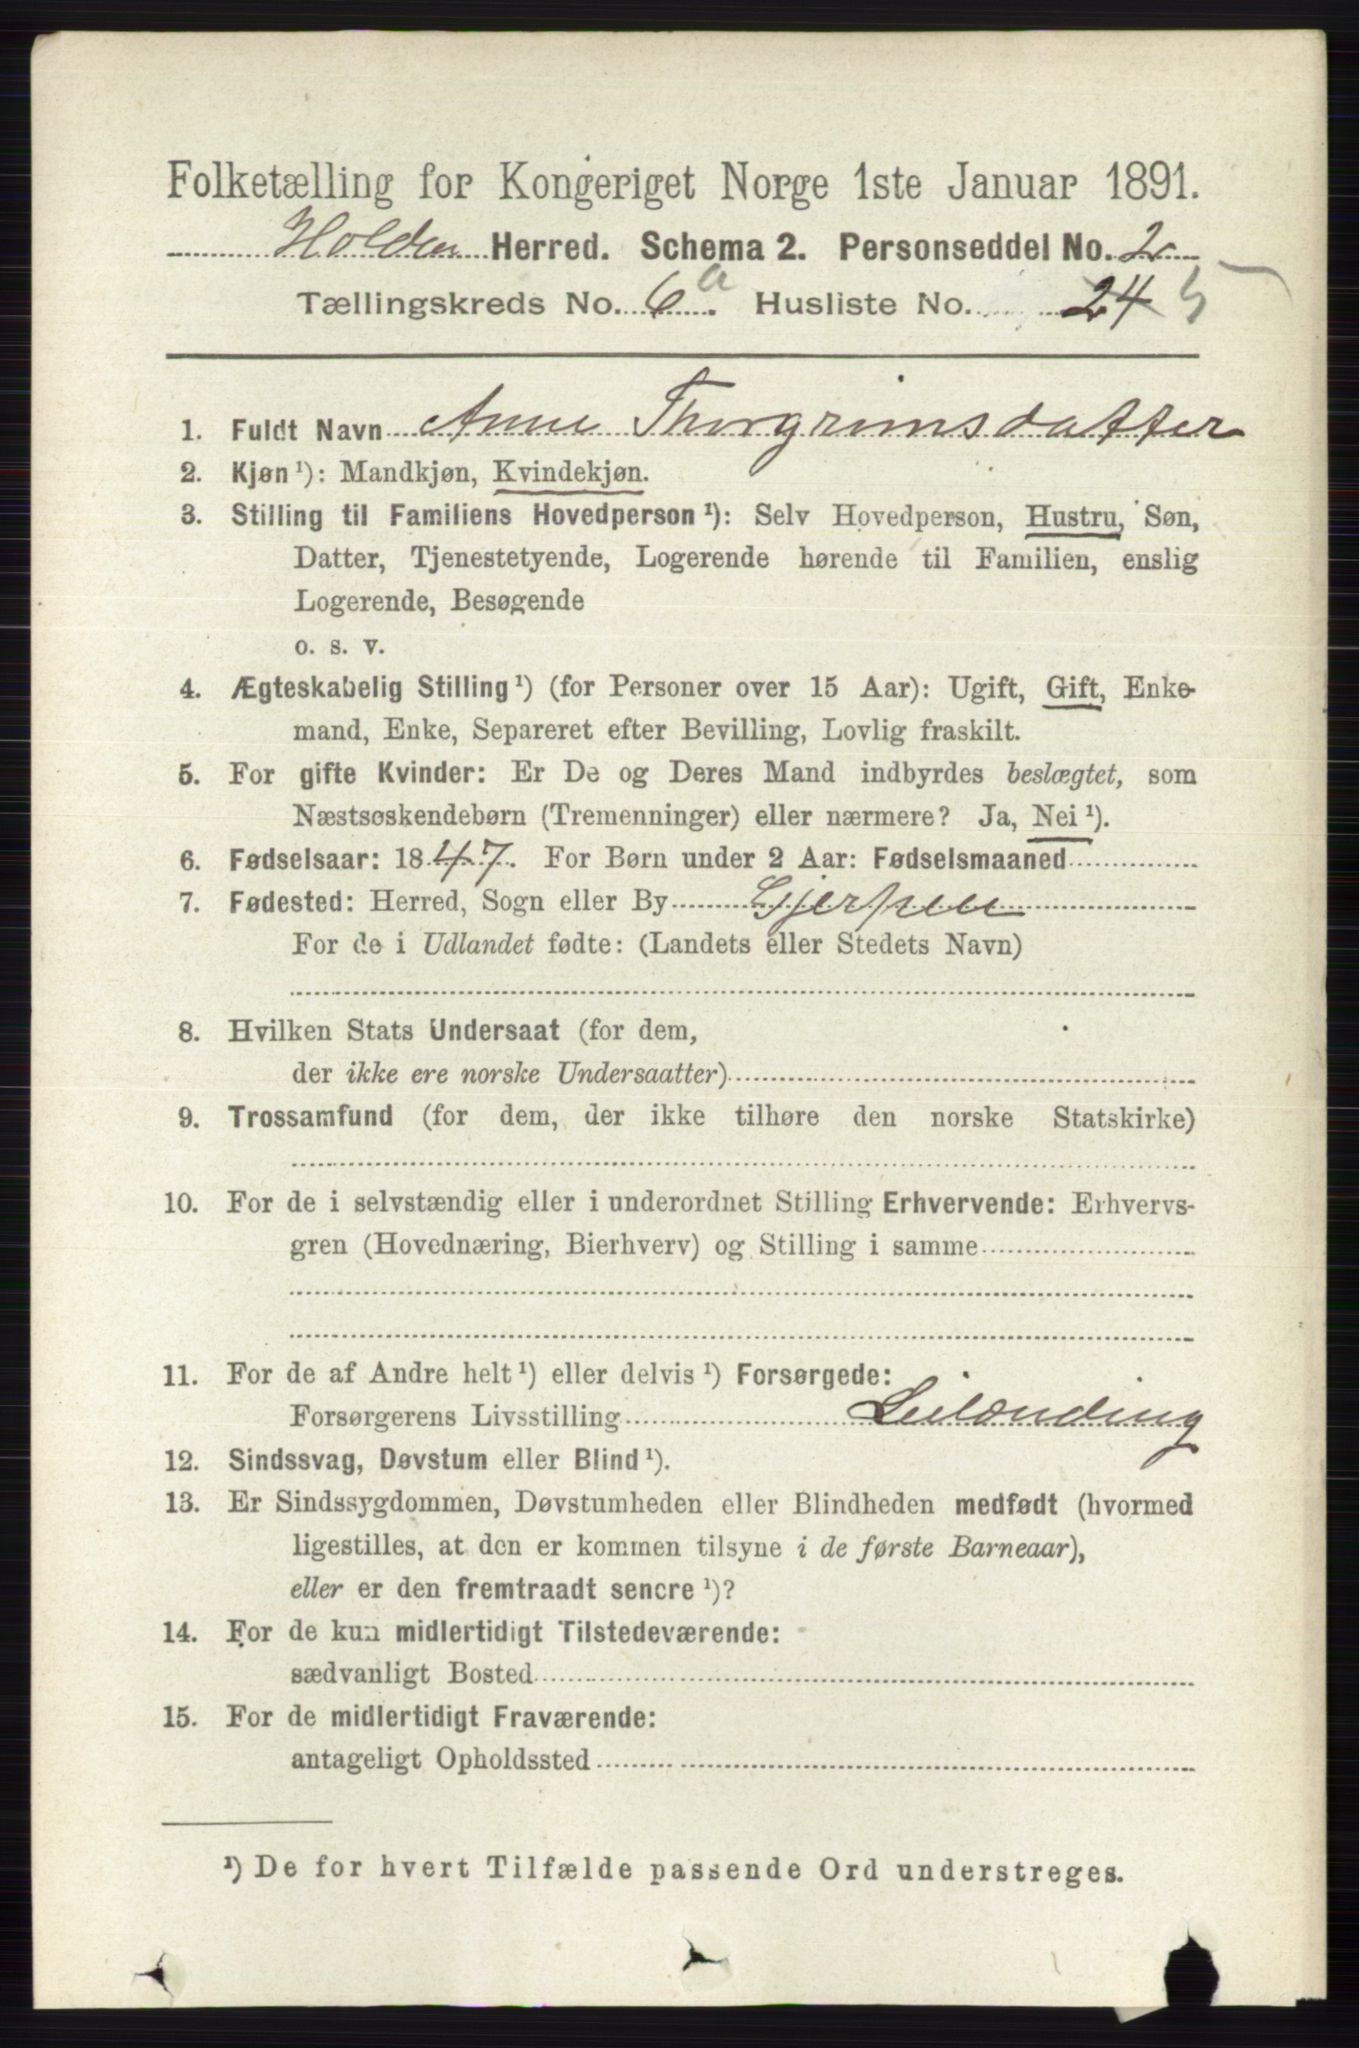 Folketælling for Kongeriget Norge 1ste Januar 1891.
Holden Herred. Schema 2. Personseddel No. 2
Tællingskreds No. 6a. Husliste No. 24 5
1. Fuldt Navn Anne Thorgrimsdatter
2. Kjøn ¹): Mandkjøn, Kvindekjøn.
3. Stilling til Familiens Hovedperson ¹): Selv Hovedperson, Hustru, Søn,
Datter, Tjenestetyende, Logerende hørende til Familien, enslig
Logerende, Besøgende
o. s. v.
4. Ægteskabelig Stilling ¹) (for Personer over 15 Aar): Ugift, Gift, Enke-
mand, Enke, Separeret efter Bevilling, Lovlig fraskilt.
5. For gifte Kvinder: Er De og Deres Mand indbyrdes beslægtet, som
Næstsøskendebørn (Tremenninger) eller nærmere? Ja, Nei ¹).
6. Fødselsaar: 1847. For Børn under 2 Aar: Fødselsmaaned
7. Fødested: Herred, Sogn eller By Gjerpen
For de i Udlandet fødte: (Landets eller Stedets Navn)
8. Hvilken Stats Undersaat (for dem,
der ikke ere norske Undersaatter)
9. Trossamfund (for dem, der ikke tilhøre den norske Statskirke)
10. For de i selvstændig eller i underordnet Stilling Erhvervende: Erhvervs-
gren (Hovednæring, Bierhverv) og Stilling i samme
11. For de af Andre helt ¹) eller delvis ¹) Forsørgede:
Forsørgerens Livsstilling Leilænding
12. Sindssvag, Døvstum eller Blind ¹).
13. Er Sindssygdommen, Døvstumheden eller Blindheden medfødt (hvormed
ligestilles, at den er kommen tilsyne i de første Barneaar),
eller er den fremtraadt senere ¹)?
14. For de kun midlertidigt Tilstedeværende:
sædvanligt Bosted
15. For de midlertidigt Fraværende:
antageligt Opholdssted
¹) De for hvert Tilfælde passende Ord understreges.